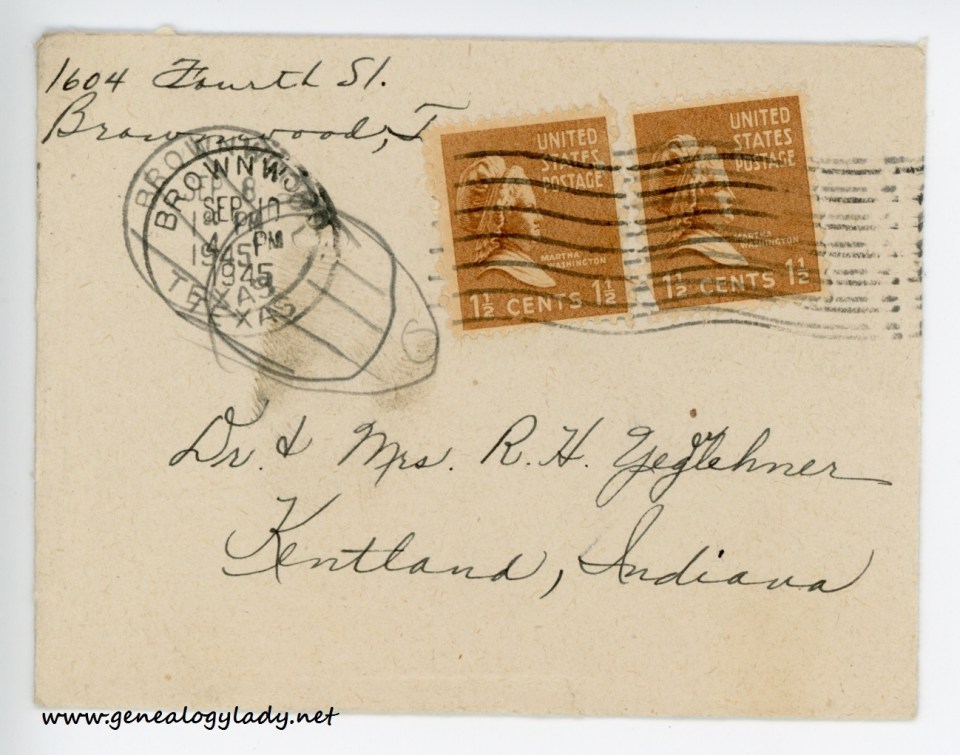 1604 Fourth St.
Brownwood, T
BROWNWOOD
SEP 8
1 PM
1945
TEXAS
BROWNWOOD
SEP 10
4 PM
1945
TEXAS
UNITED
STATES
POSTAGE
MARTHA
WASHINGTON
1½ CENTS 1½
UNITED
STATES
POSTAGE
MARTHA
WASHINGTON
1½ CENTS 1½
Dr. & Mrs. R. H. Yeglehner
Kentland, Indiana
www.genealogylady.net